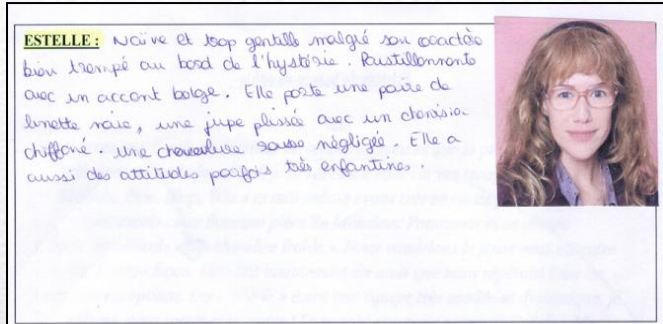 ESTELLE : Naïve et trop gentille malgré son caractère
bien trempé au bord de l'hystérie. Postillonnante
avec un accent belge. Elle porte une paire de
lunette noire, une jupe plissée avec un chemisier
chiffoné. une chevelure rousse négligée. Elle a
aussi des attitudes parfois très enfantines.